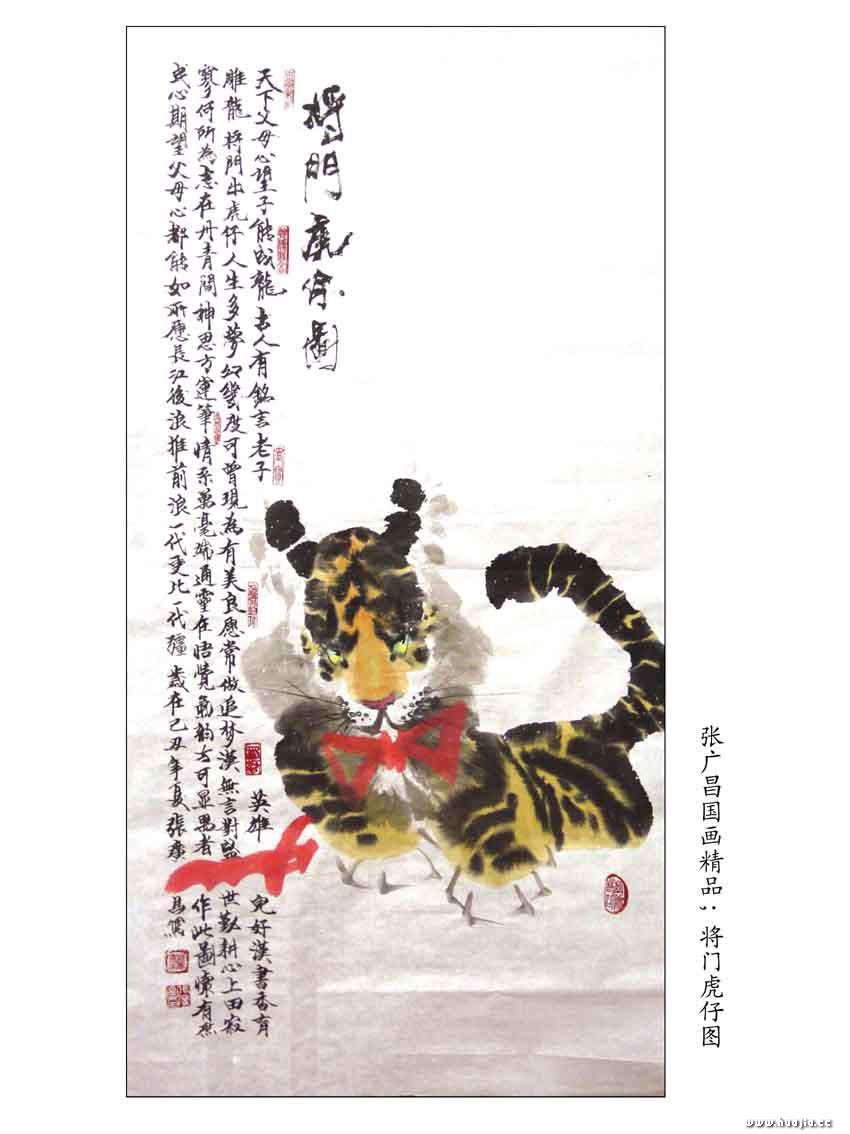 將門虎仔圖
天下父母心望子能成龍古人有銘言老子英雄兒好漢書香育
雕龍將門出虎仔人生多夢幻幾度可曾現為有美良愿常做追梦漢無言對盛世勤耕心上田寂
寥何所為志在丹青間神思方運筆情系萬毫端通靈在悟覺氣韵方可显愚者作此圖懷有忐
忑心期望父母心都能如所愿長江後浪推前浪一代更比一代疆歲在己丑年夏張廣昌寫
张广昌国画精品：将门虎仔图
www.huajia.cc